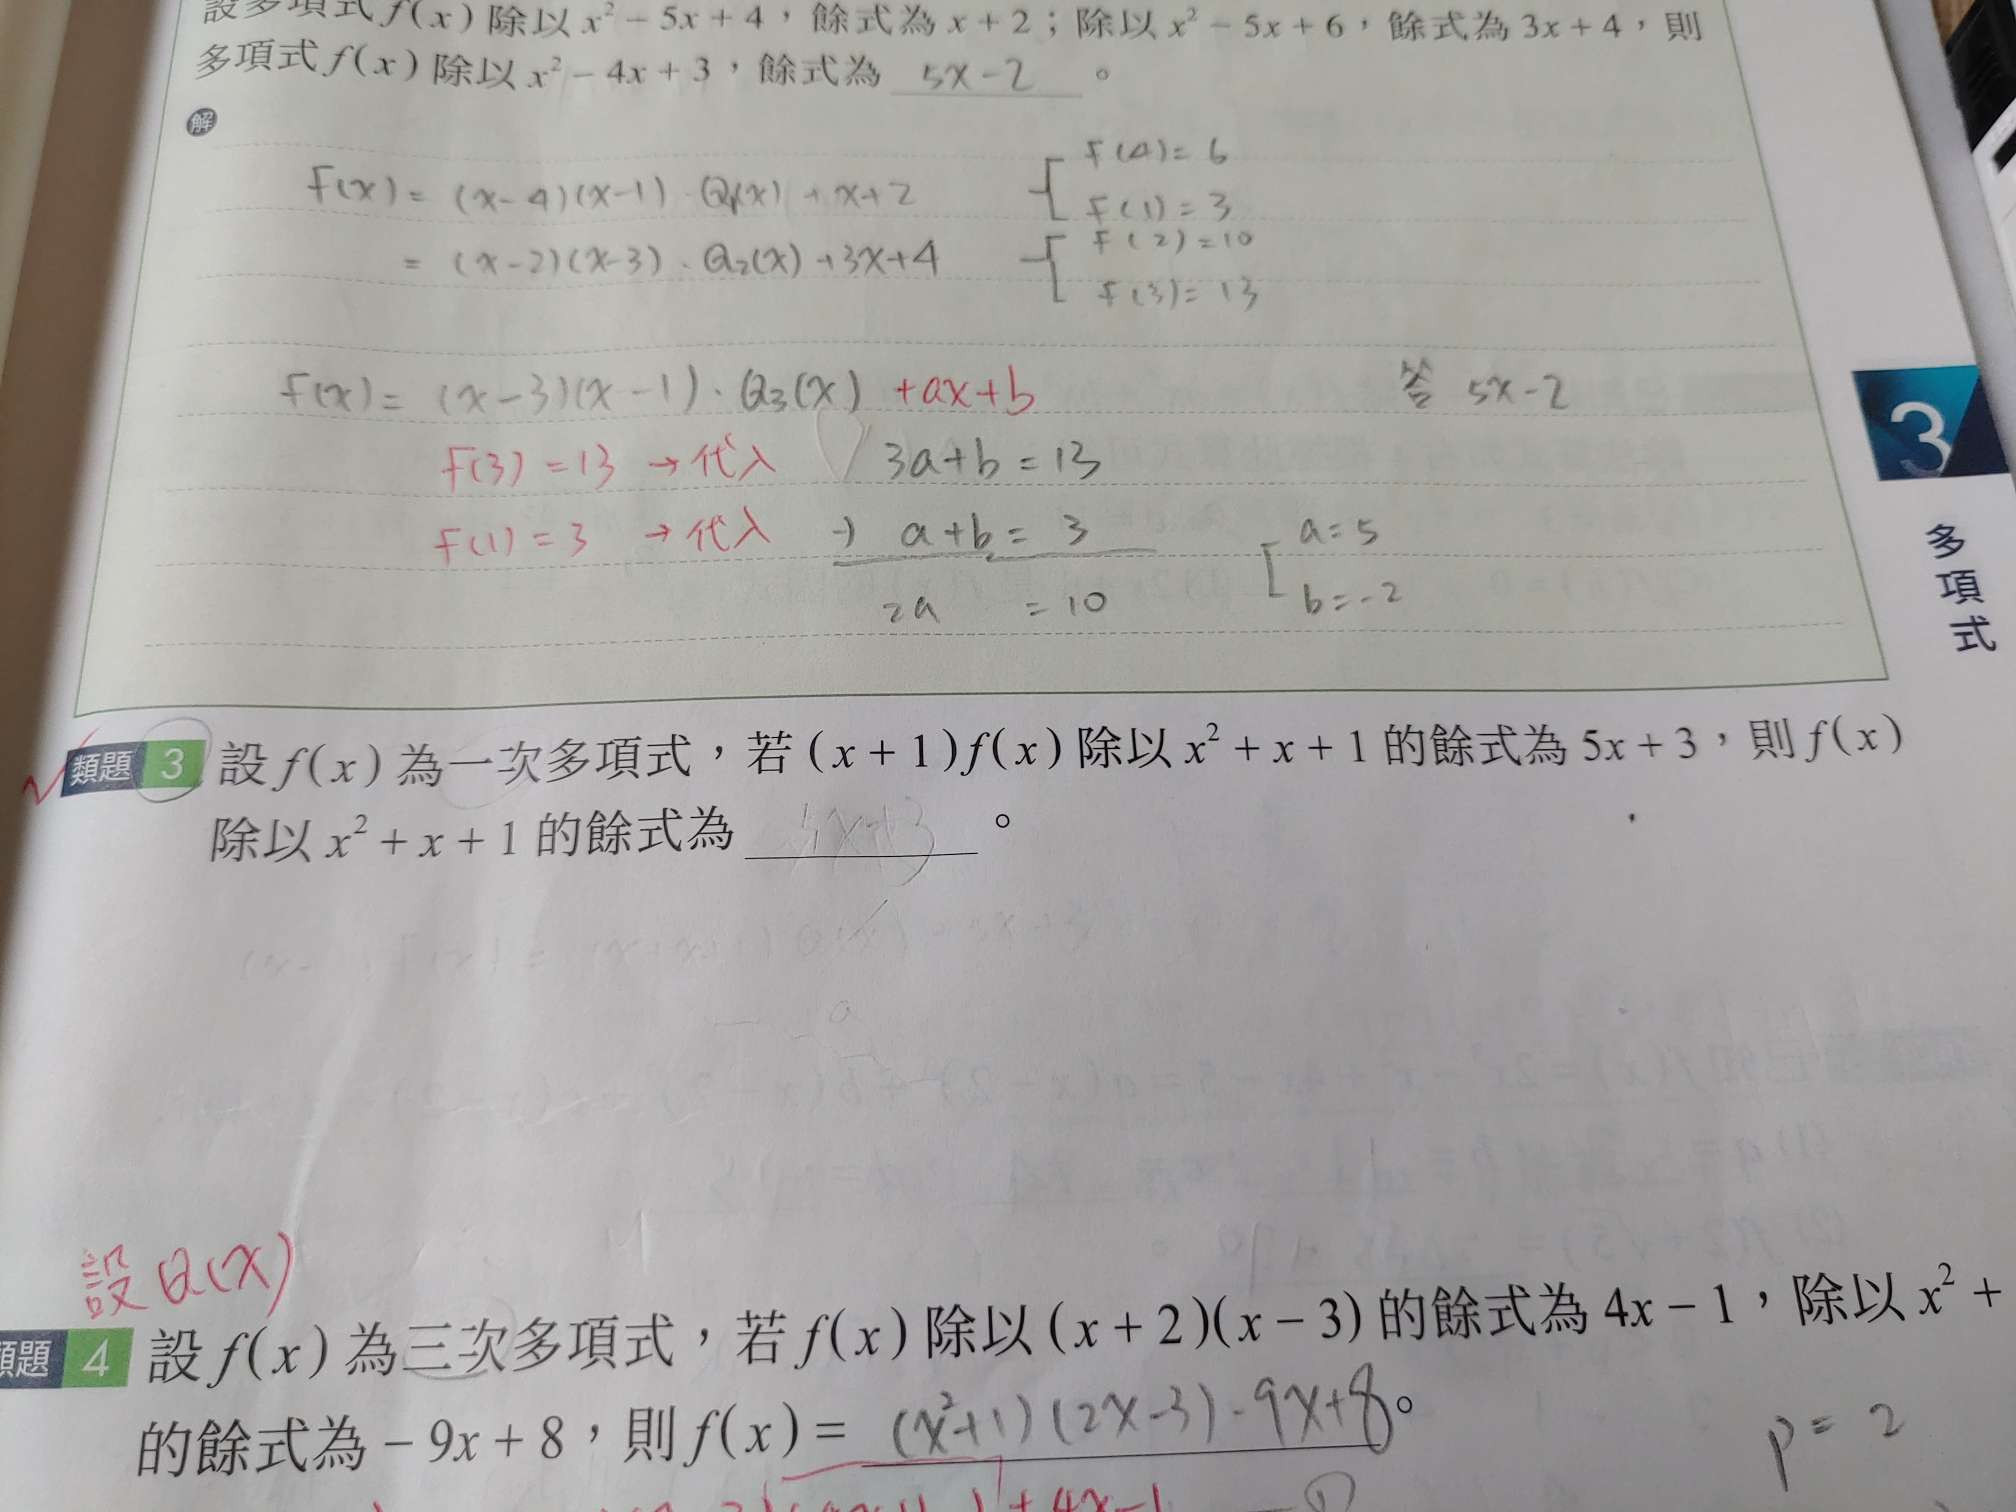 設多項式 f(x) 除以 x² − 5x + 4，餘式為 x + 2；除以 x² − 5x + 6，餘式為 3x + 4，則
多項式 f(x) 除以 x² − 4x + 3，餘式為 5x-2 。
解
F(x) = (x-4)(x-1)·Q₁(x) + x+2
F(4) = 6
F(1) = 3
= (x-2)(x-3)·Q₂(x) +3x+4
F(2) = 10
F(3) = 13
F(x) = (x-3)(x-1)·Q₃(x) +ax+b
答 5x-2
F(3) = 13 → 代入 3a+b = 13
F(1) = 3 → 代入 -) a+b = 3
a = 5
2a = 10
b = -2
3
多項式
類題 3 設 f(x) 為一次多項式，若 (x + 1)f(x) 除以 x² + x + 1 的餘式為 5x + 3，則 f(x)
除以 x² + x + 1 的餘式為 5x+3 。
設Q(x)
類題 4 設 f(x) 為三次多項式，若 f(x) 除以 (x + 2)(x − 3) 的餘式為 4x − 1，除以 x² +
的餘式為 − 9x + 8，則 f(x) = (x²+1)(2x-3)-9x+8。
p = 2
+4x-1